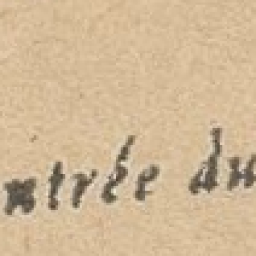 ntrée du